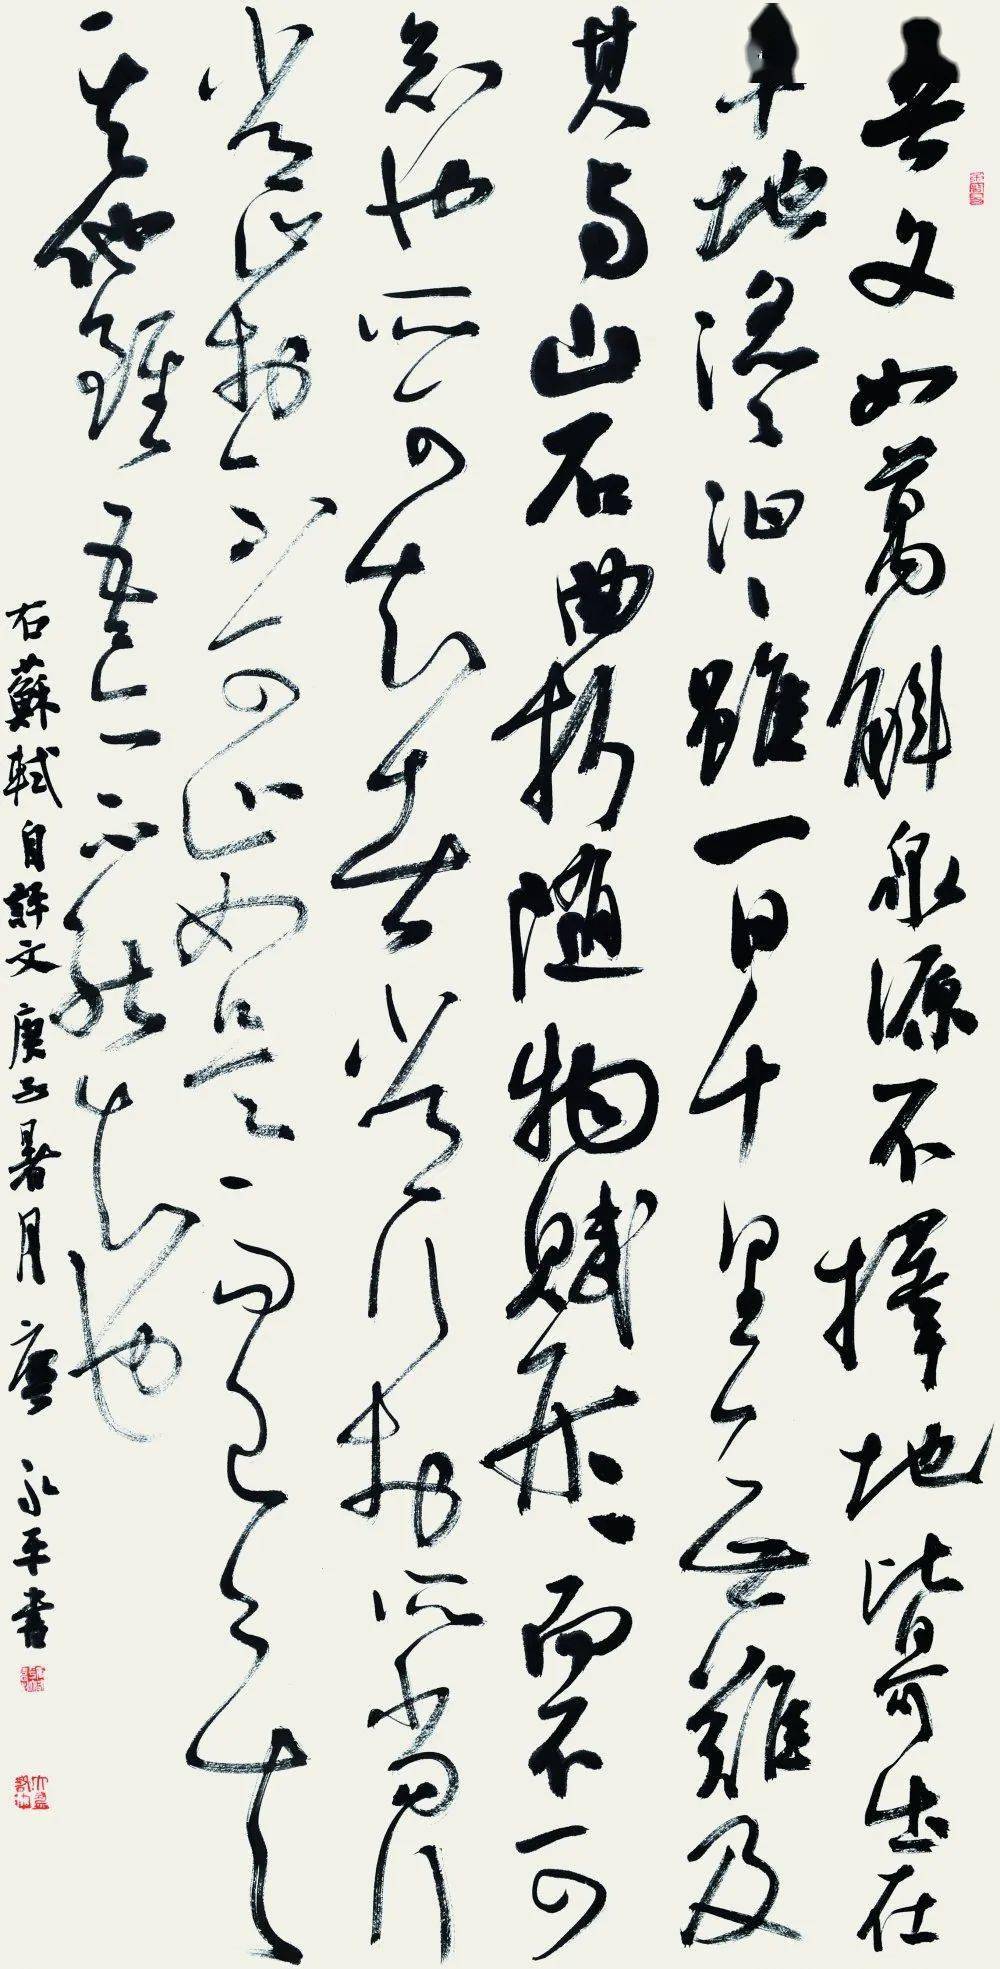 吾文如萬斛泉源不擇地皆可出在
平地滔〻汩〻雖一日千里無難及
其與山石曲折隨物賦形而不可
知也所可知者常行於所當行
常止於不可止如是而已矣
其他雖吾亦不能知也
右蘇軾自評文庚子暑月唐永平書